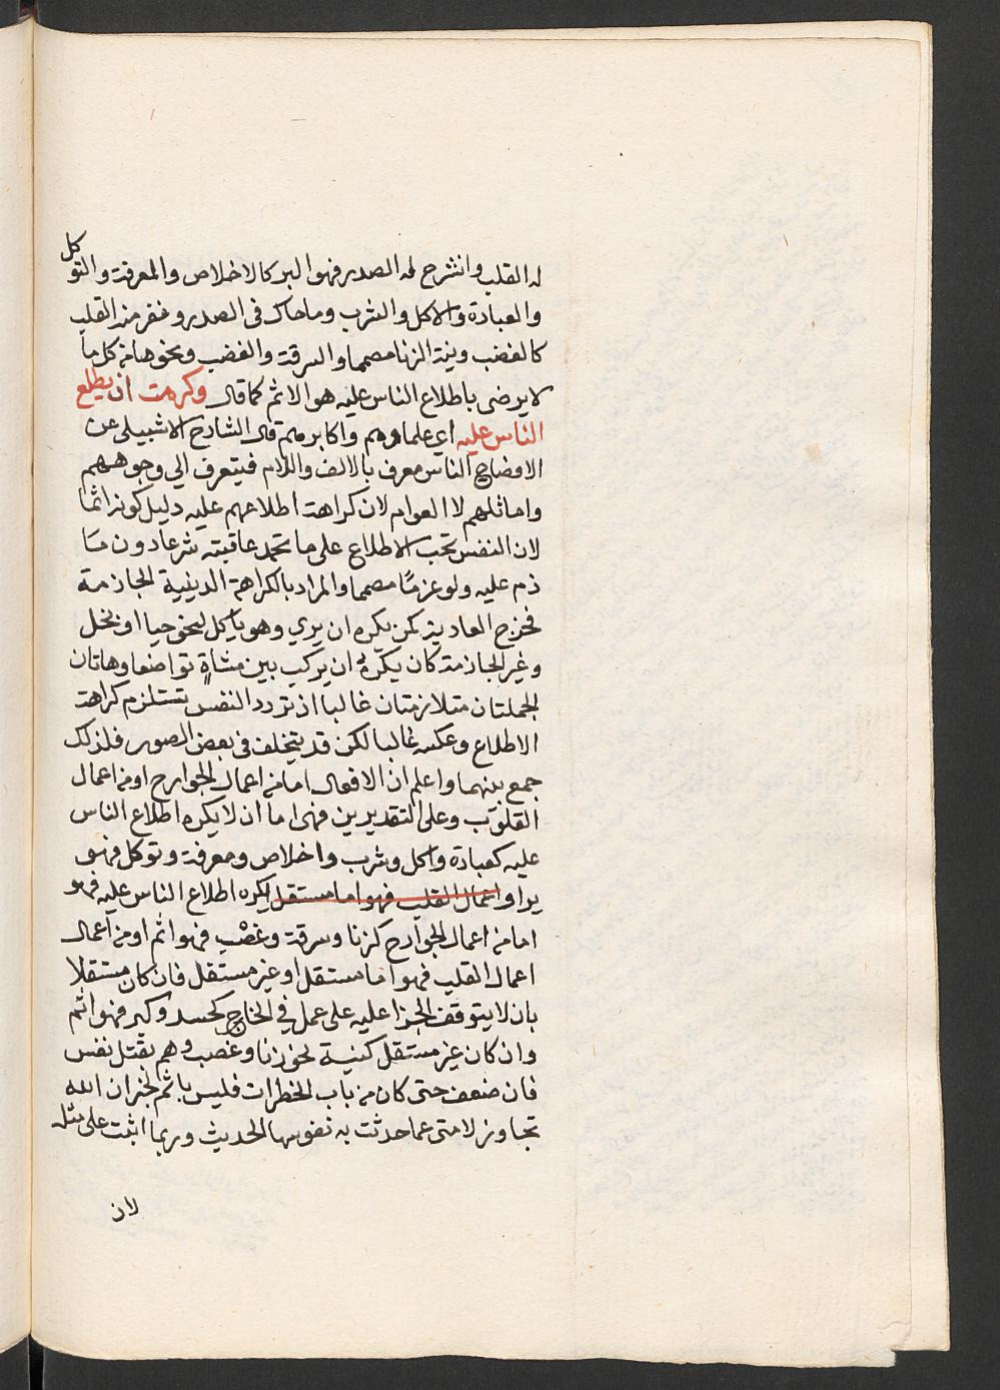 له القلب وانشرح له الصدر فهو البر كالاخلاص والمعرفة والتوكل
والعبادة والاكل والشرب وما حاك في الصدر ونفر منه القلب
كالغضب ونية الزنا مصمما والسرقة والغضب ونحوها من كل ما
لا يرضى باطلاع الناس عليه هو الاثم كما قال وكرهت ان يطلع
الناس عليه اي علماوهم واكابرهم قال الشارح الاشبيلي عن
الافصاح الناس معرف بالالف واللام فيتعرف الي وجوههم
واماثلهم لا العوام لان كراهة اطلاعهم عليه دليل كونه اثما
لان النفس تحب الاطلاع على ما تحمد عاقبته شرعا دون ما
ذم عليه ولو عزما مصمما والمراد بالكراهة الدينية الجازمة
فخرج العادية كمن يكره ان يري وهو ياكل لنحو حيا او بخل
وغير الجازمة كان يكره ان يركب بين مشاة تواضعا وهاتان
الجملتان متلازمتان غالبا اذ تردد النفس تستلزم كراهة
الاطلاع وعكسه غالبا لكن قد يتخلف في بعض الصور فلذلك
جمع بينهما واعلم ان الافعال اما من اعمال الجوارح او من اعمال
القلوب وعلى التقديرين فهى اما ان لا يكره اطلاع الناس
عليه كعبادة واكل وشرب واخلاص ومعرفة وتوكل فهو
بر او اعمال القلب فهو اما مستقل يكره اطلاع الناس عليه فهو
اما من اعمال الجوارح كزنا وسرقة وغصب فهو اثم او من اعمال
اعمال القلب فهو اما مستقل او غير مستقل فان كان مستقلا
بان لا يتوقف الجزا عليه على عمل في الخارج كحسد وكبر فهو اثم
وان كان غير مستقل كنية نحو زنا وغصب وهم بقتل نفس
فان ضعف حتى كان من باب الخطرات فليس باثم لخبر ان الله
تجاوز لامتى عما حدثت به نفوسها الحديث وربما اثبت على مثله
لان